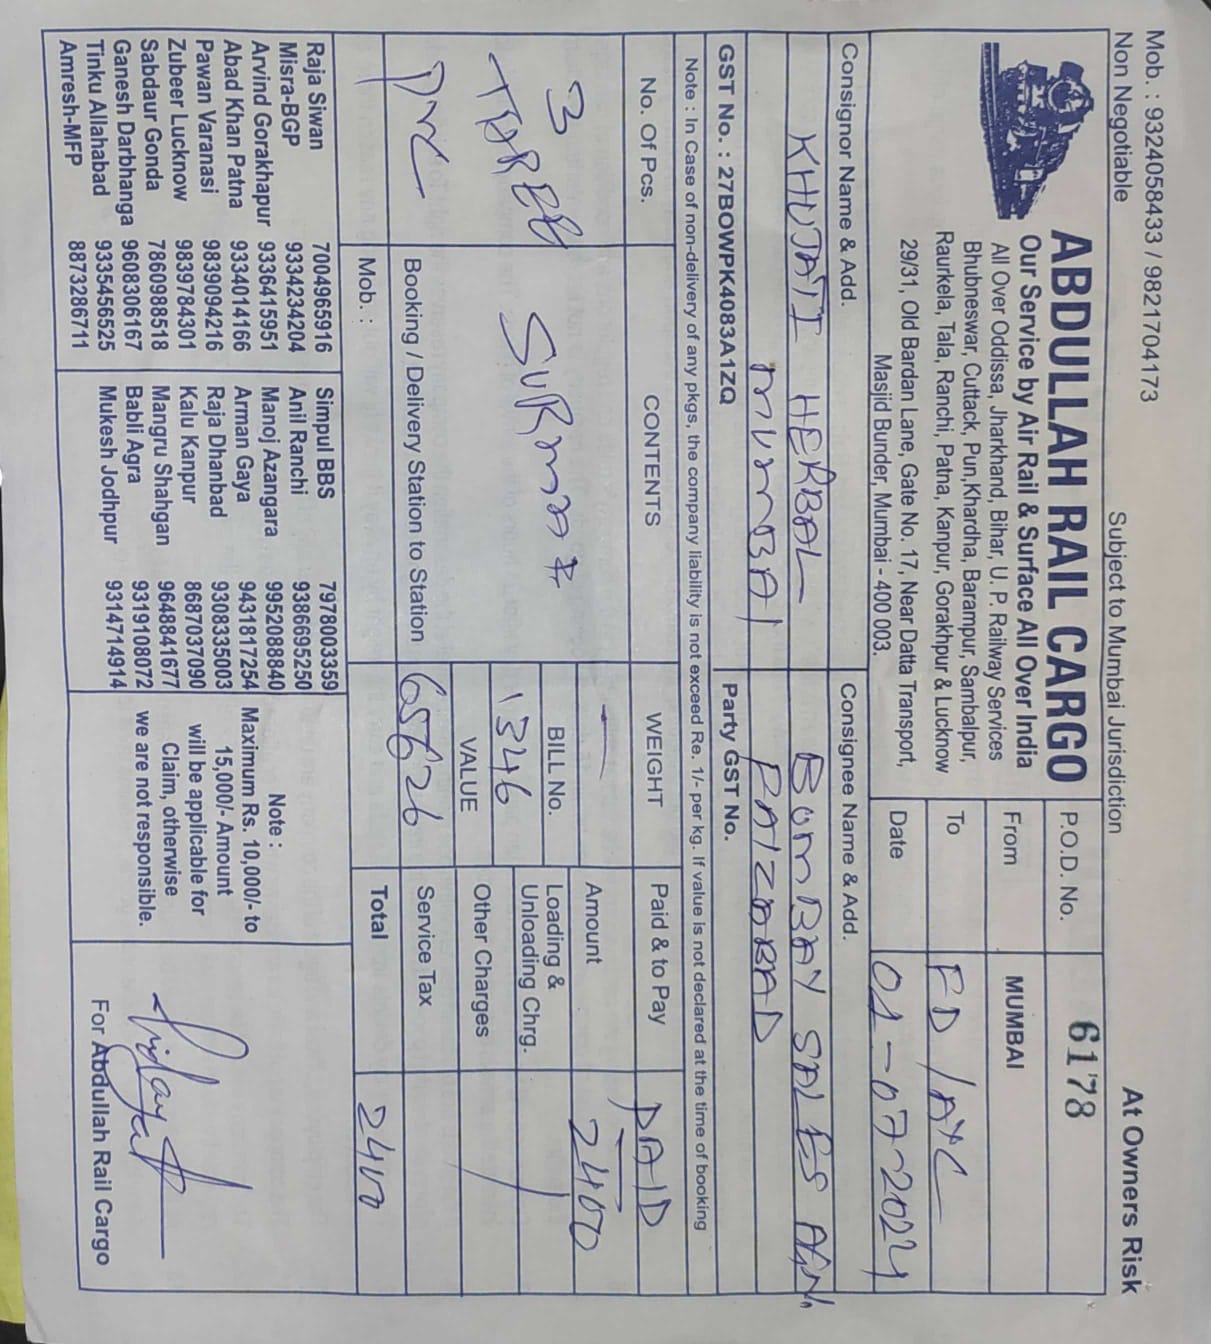 Mob. : 9324058433 / 9821704173
Non Negotiable
Subject to Mumbai Jurisdiction
At Owners Risk
ABDULLAH RAIL CARGO
Our Service by Air Rail & Surface All Over India
All Over Oddissa, Jharkhand, Bihar, U. P. Railway Services
Bhubneswar, Cuttack, Pun,Khardha, Barampur, Sambalpur,
Raurkela, Tala, Ranchi, Patna, Kanpur, Gorakhpur & Lucknow
29/31, Old Bardan Lane, Gate No. 17, Near Datta Transport,
Masjid Bunder, Mumbai - 400 003.
P.O.D. No. 6178
From MUMBAI
To FD / AYC
Date 01-07-2024
Consignor Name & Add.
KHOJATI HERBAL
MUMBAI
GST No. : 27BOWPK4083A1ZQ
Consignee Name & Add.
BOMBAY SALES AGN.
FAIZABAD
Party GST No.
Note : In Case of non-delivery of any pkgs, the company liability is not exceed Re. 1/- per kg. If value is not declared at the time of booking
No. Of Pcs. CONTENTS WEIGHT Paid & to Pay PAID
3 Amount 2400
SURMA
BILL No. Loading &
Unloading Chrg.
1346
VALUE Other Charges
65626 Service Tax
Booking / Delivery Station to Station
Mob. : Total 2400
Raja Siwan 7004965916
Misra-BGP 9334234204
Arvind Gorakhapur 9336415951
Abad Khan Patna 9334014166
Pawan Varanasi 9839094216
Zubeer Lucknow 9839784301
Sabdaur Gonda 7860988518
Ganesh Darbhanga 9608306167
Tinku Allahabad 9335456525
Amresh-MFP 8873286711
Simpul BBS 7978003359
Anil Ranchi 9386695250
Manoj Azangara 9952088840
Arman Gaya 9431817254
Raja Dhanbad 9308335003
Kalu Kanpur 8687037090
Mangru Shahgan 9648841677
Babli Agra 9319108072
Mukesh Jodhpur 9314714914
Note :
Maximum Rs. 10,000/- to
15,000/- Amount
will be applicable for
Claim, otherwise
we are not responsible.
For Abdullah Rail Cargo